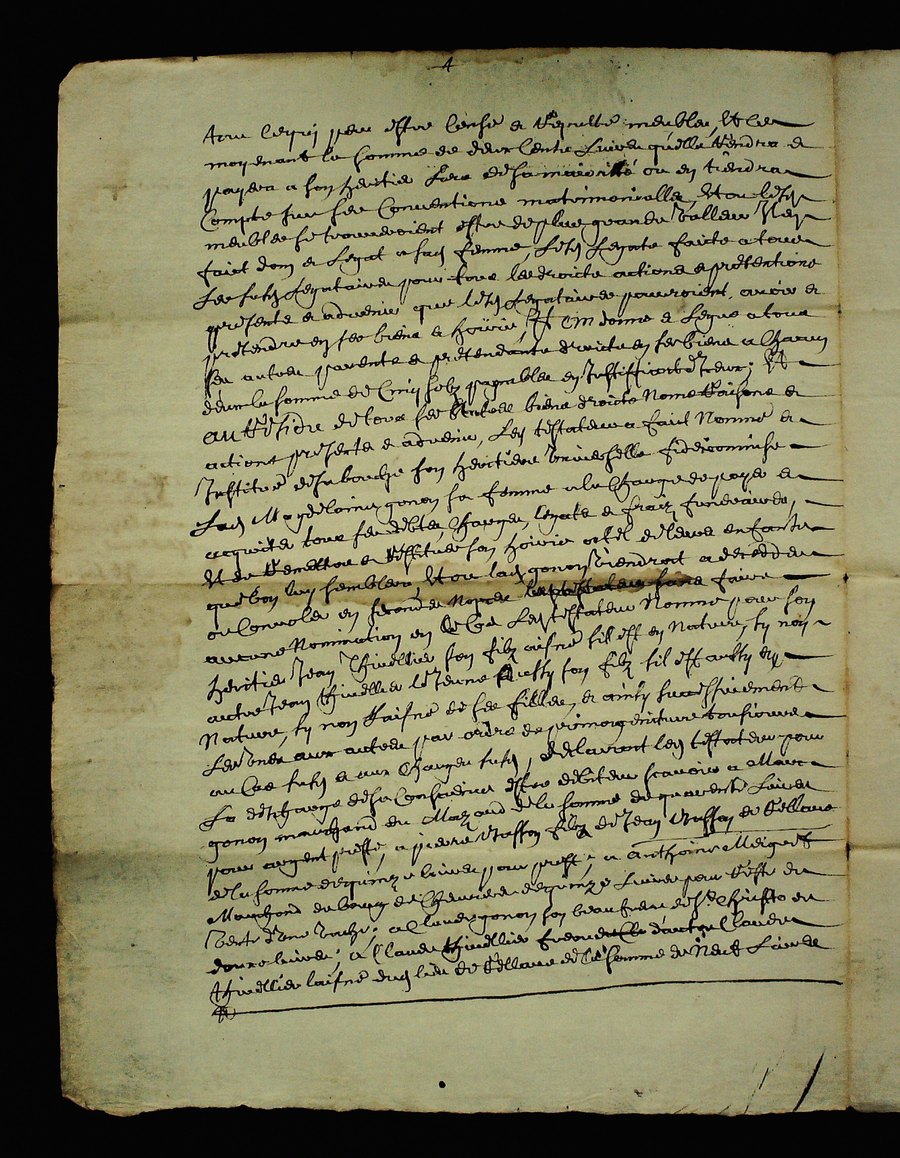 4
tous lequi peu estre censé et reputté meubles, et le
moyenant la somme de deux cents livres qu'elle rendra et
payera a son heritier lors de sa maiorité ou en tiendra
Compte sur ses Conventions matrimonialles, et ou lesd
meubles se trouveroient estre de plus grande valleur Il en
faict don et legat a sad femme, lesd legats faicts a tous
les susd legataires pour tous les droicts actions et prétentions
présents et advenir que lesd legataires pourroient avoir et
prétendre en ses biens et hoirie, Item donne et legue a tous
ses autres parents et prétendants droicts en ses biens a Chacun
d'eux la somme de Cinq solz payables en Justiffiant d'iceux; Et
au Résidu de tous ses autres biens droicts Noms Raisons et
actions présents et advenir, led testateur a faict Nommé et
Institué de sa bouche son heritiere universelle fideicomisse
lad Magdelaine gonon sa femme a la Charge de payer et
acquiter tous ses debtes, Charges, legats et fraiz funeraires,
et de Remettre et Restituer son hoirie a tel de leurs enfants
que bon luy semblera, et ou lad gonon viendroit a décedder
ou Convoler en secondes Nopces sans faire
aucune Nomination en Ce Cas led testateur Nomme pour son
heritier Jean Thivellier son filz aisné sil est en Nature, sy non
autre Jean Thivellier le Jeune aussy son filz sil est aussy en
Nature, sy non l'aisné de ses filles, et ainsy successivement
les unes aux autres par ordre de primogeniture tousiours
au Cas susd et aux Charges susd, declarant led testateur pour
la descharge de sa Conscience estre debiteur scavoir a Marc
gonon marchand du Mazand de la somme de quarente livres
pour argent presté, a pierre Chasson filz de Jean Chasson de Vellave
de la somme de quinze livres pour prest; a Anthoine Meigret
Marchand du bourg de de quinze livres pour reste de
vente d'une vache; a Claude gonon son beau frere de St Christo de
douze livres; a Claude Thivellier d'autre Claude
Thivellier laisné dud lieu de Vellave de la somme de Neuf livres